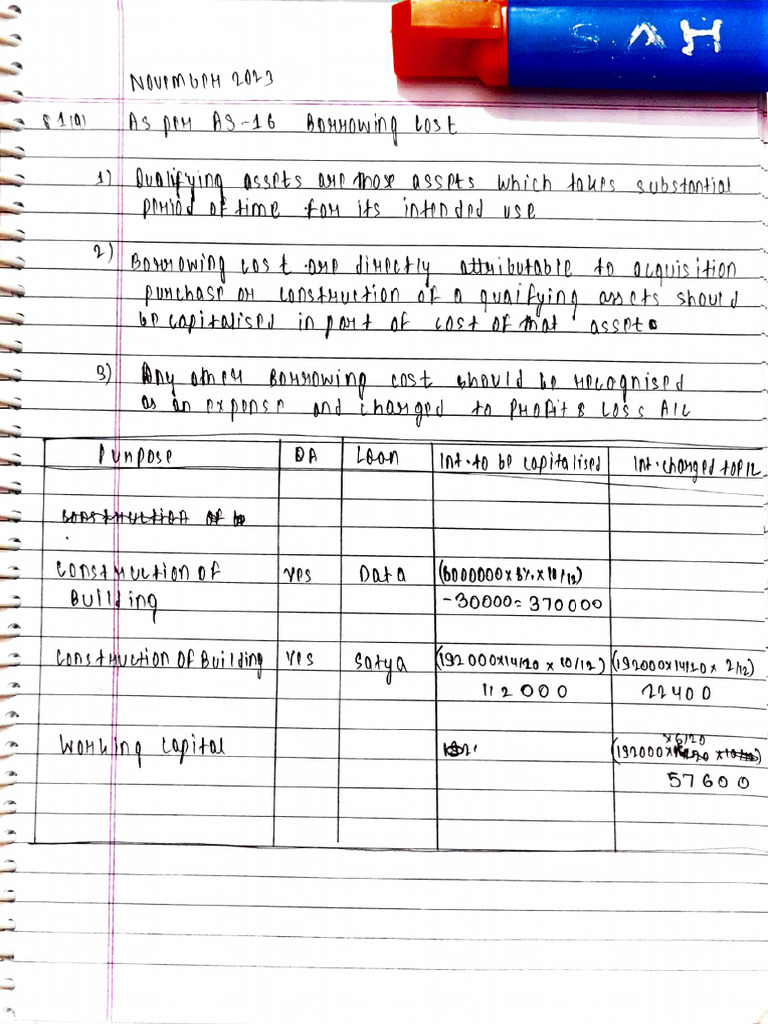 SAH
NOVEMBER 2023
Q 1(a) As per AS-16 Borrowing Cost
1) Qualifying assets are those assets which takes substantial
period of time for its intended use
2) Borrowing cost are directly attributable to acquisition
purchase or construction of a qualifying assets should
be capitalised in part of cost of that asset.
3) Any other Borrowing cost should be recognised
as an expense and charged to Profit & Loss A/c
Purpose QA Loan Int. to be capitalised Int. charged to P/L
construction of
Construction of yes Data (6000000x8%x10/12)
Building -30000=370000
Construction of Building yes Satya (192000x14/20 x 10/12) (192000x14/20x 2/12)
112000 22400
x6/20
Working Capital (192000
57600